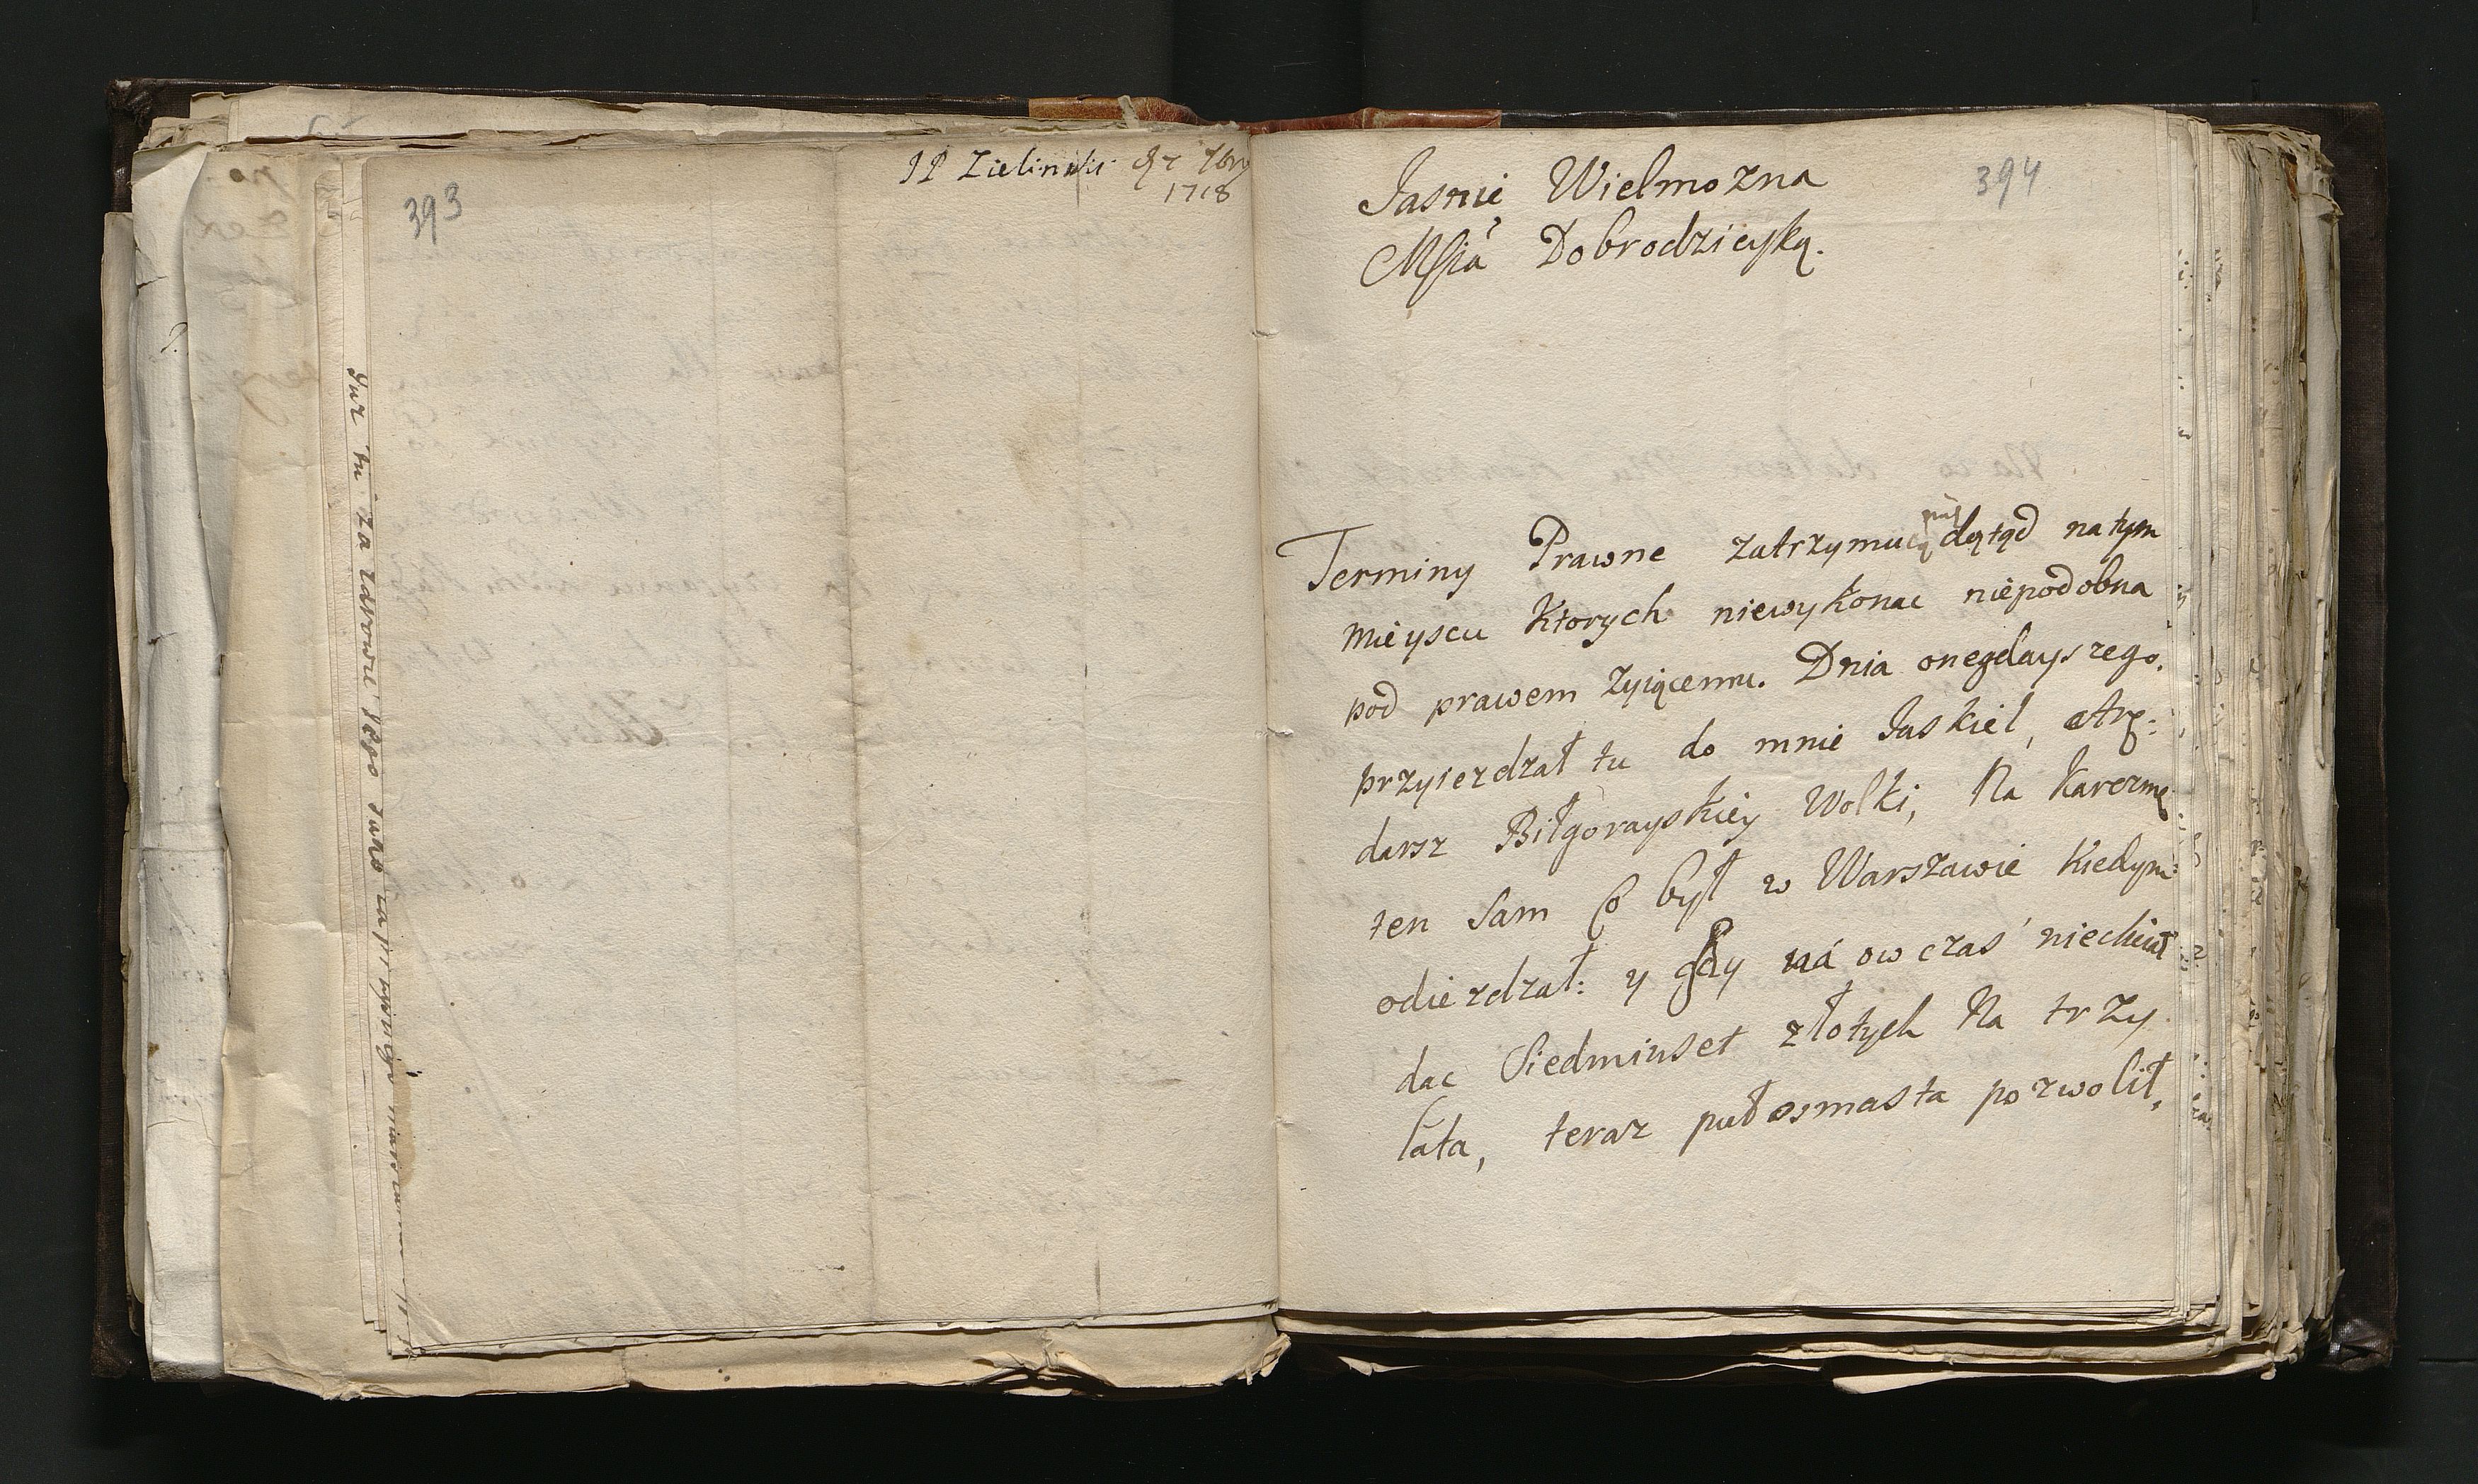 393
JP Zielinski
1718
Jur tu za
394
Jasnie Wielmozna
Mscia Dobrodzieyką.
Terminy Prawne zatrzymuią dotąd na tym
mieyscu Ktorych niewykonac niepodobna
pod prawem zyiącemu. Dnia onegdayszego.
przyiezdzał tu do mnie Jaskiel, Arę:
darsz Biłgorayskiey Wolki, Na Karczmę
ten sam Co był w Warszawie Kiedym
odiezdzał: y gdy ná ow czas niechciał
dac Siedmiuset złotych Na trzy
lata, teraz pułosmasta pozwolił,